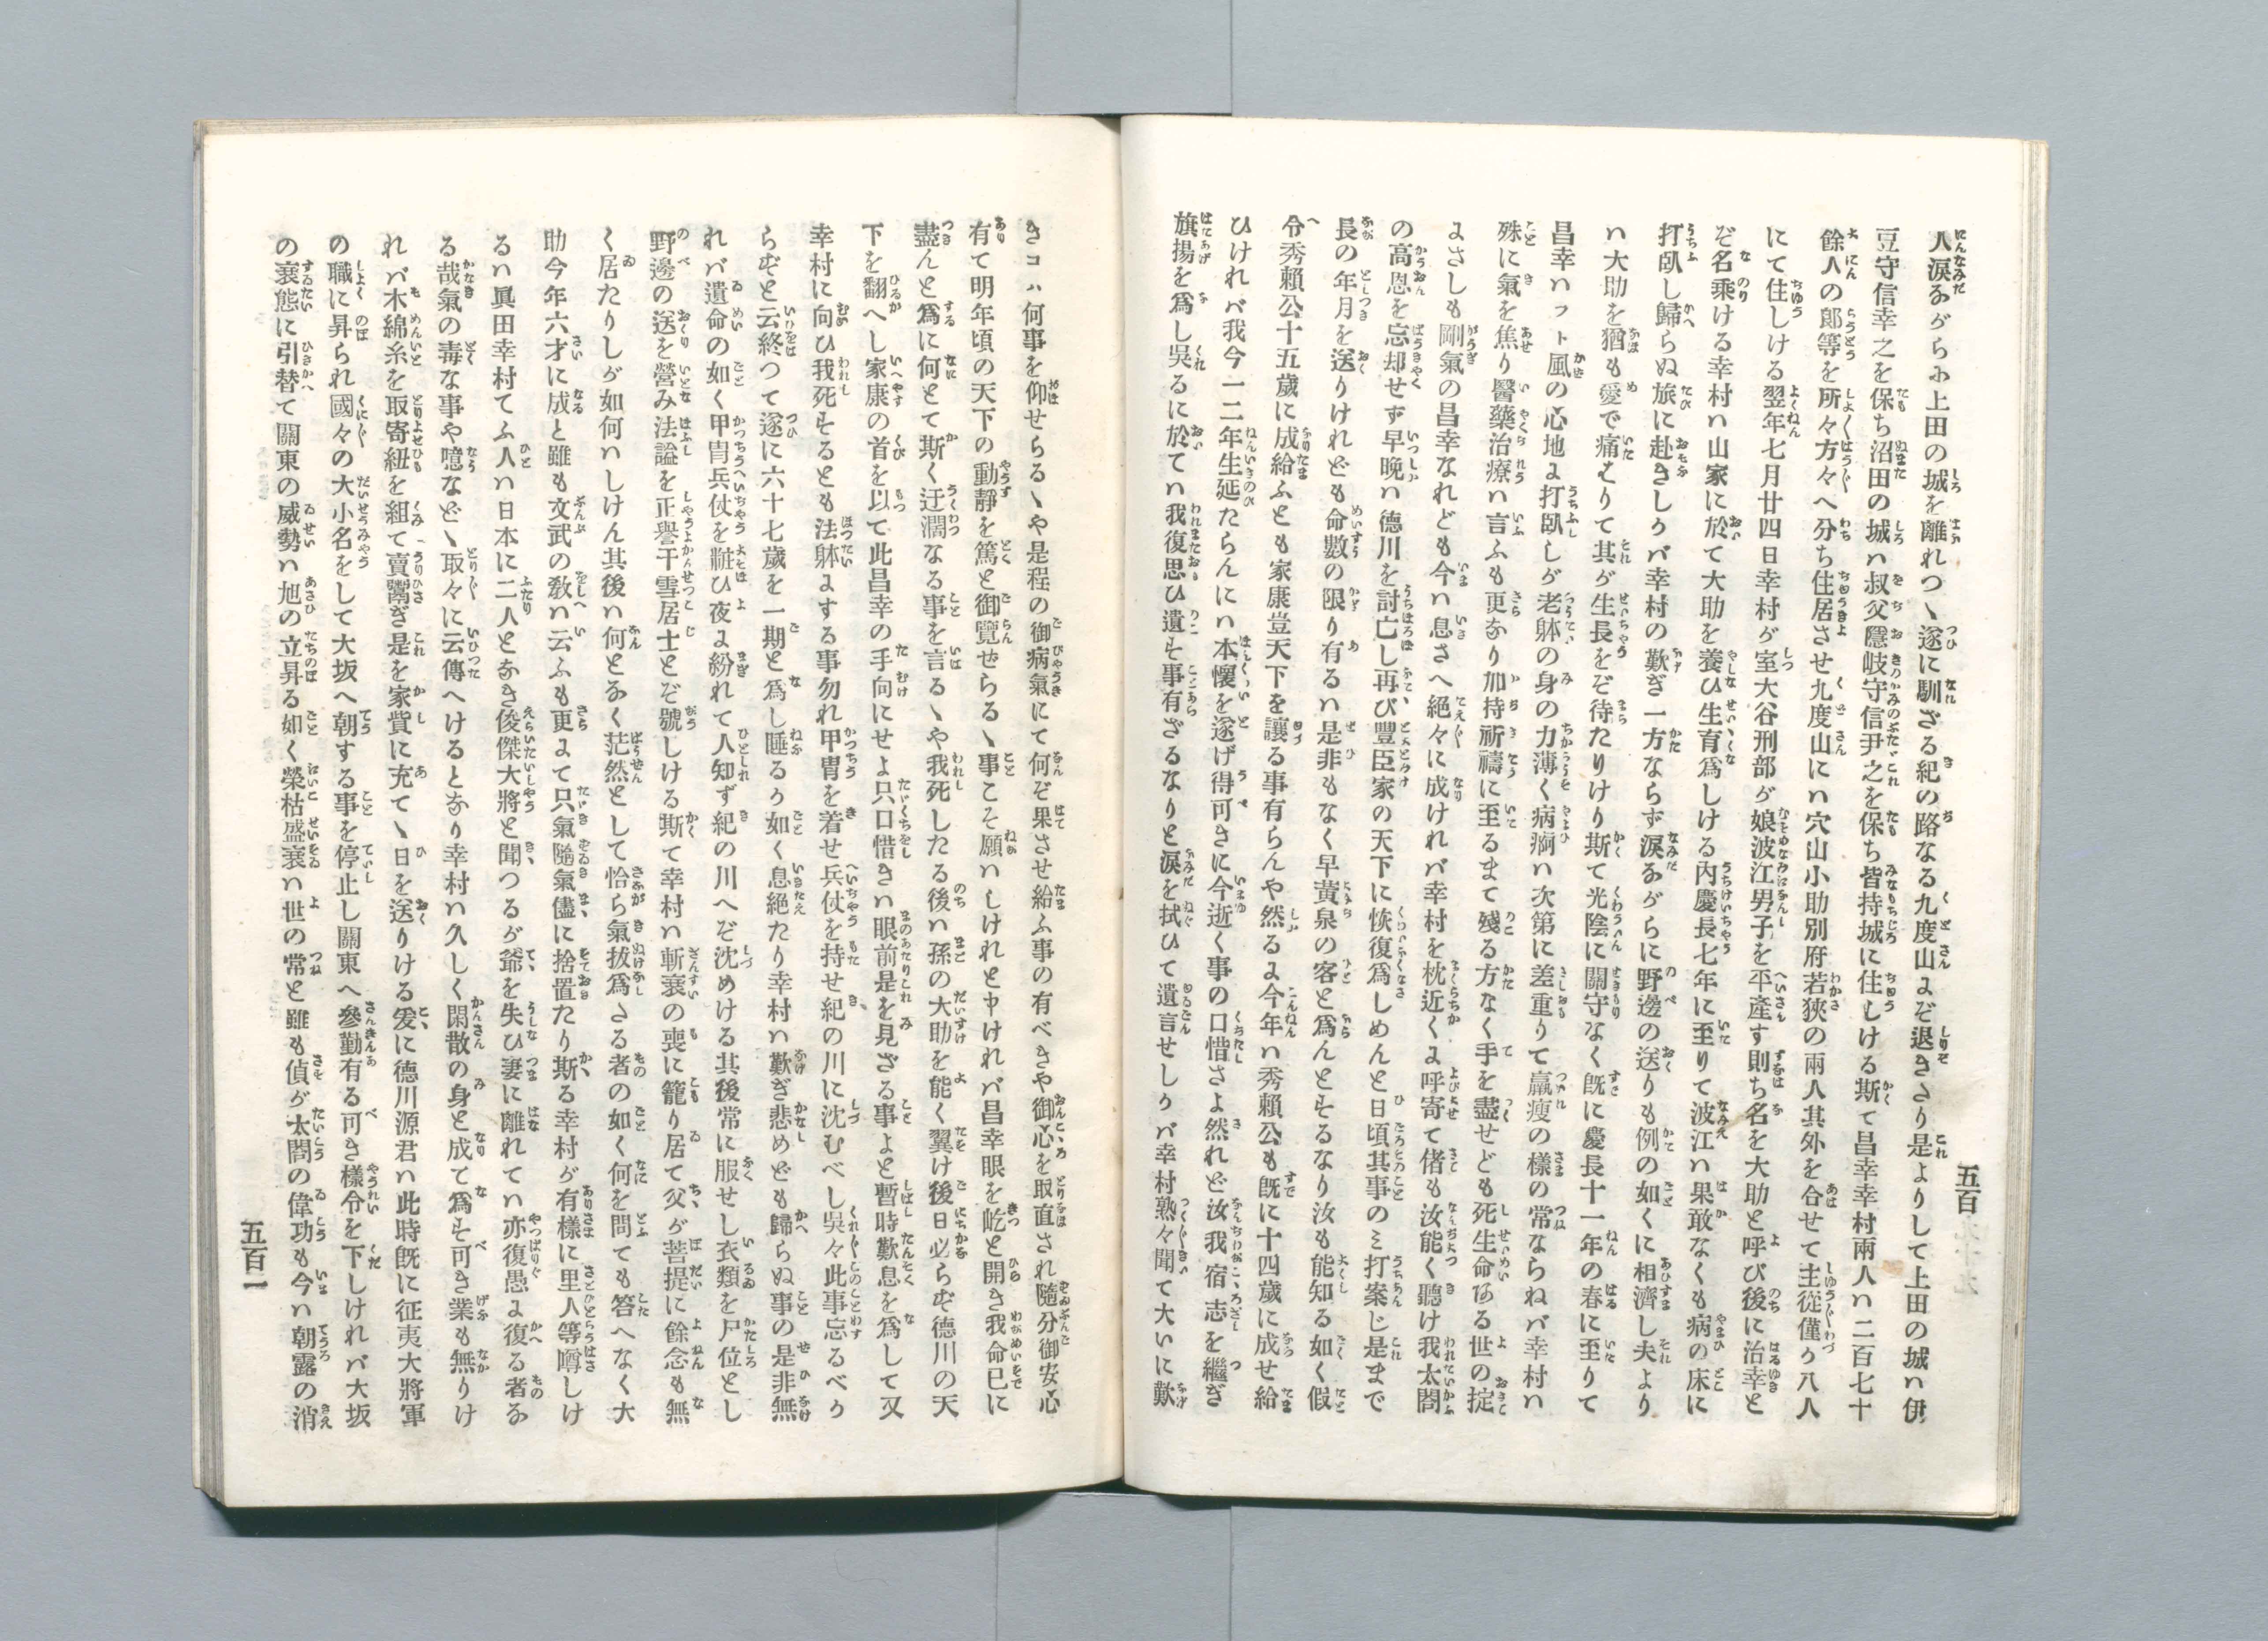 五百
人涙ながらに上田の城を離れつゝ遂に馴ざる紀の路なる九度山にぞ退きさり是よりして上田の城ハ伊
豆守信幸之を保ち沼田の城ハ叔父隱岐守信尹之を保ち皆持城に住しける斯て昌幸幸村兩人ハ二百七十
餘人の郎等を所々方々へ分ち住居させ九度山にハ穴山小助別府若狹の兩人其外を合せて主從僅か八人
にて住しける翌年七月廿四日幸村が室大谷刑部が娘波江男子を平產す則ち名を大助と呼び後に治幸と
ぞ名乘ける幸村ハ山家に於て大助を養ひ生育爲しける内慶長七年に至りて波江ハ果敢なくも病の床に
打臥し歸らぬ旅に赴きしかバ幸村の歎ぎ一方ならず涙ながらに野邊の送りも例の如くに相濟し夫より
ハ大助を猶も愛で痛はりて其が生長をぞ待たりけり斯て光陰に關守なく旣に慶長十一年の春に至りて
昌幸ハフト風の心地に打臥しが老躰の身の力薄く病痾ハ次第に差重りて羸瘦の樣の常ならねバ幸村ハ
殊に氣を焦り醫藥治療ハ言ふも更なり加持祈禱に至るまて殘る方なく手を盡せども死生命ある世の掟
よさしも剛氣の昌幸なれども今ハ息さへ絶々に成けれバ幸村を枕近くに呼寄て偖も汝能く聽け我太閤
の高恩を忘却せず早晩ハ德川を討亡し再び豐臣家の天下に恢復爲しめんと日頃其事のミ打案じ是まで
長の年月を送りけれども命數の限り有るハ是非もなく早黄泉の客と爲んとするなり汝も能知る如く假
令秀賴公十五歲に成給ふとも家康豈天下を讓る事有らんや然るに今年ハ秀賴公も旣に十四歲に成せ給
ひけれバ我今一二年生延たらんにハ本懷を遂げ得可きに今逝く事の口惜さよ然れど汝我宿志を繼ぎ
旗揚を爲し吳るに於てハ我復思ひ遺す事有ざるなりと涙を拭ひて遺言せしかバ幸村熟々聞て大いに歎
きコハ何事を仰せらるゝや是程の御病氣にて何ぞ果させ給ふ事の有べきや御心を取直され隨分御安心
有て明年頃の天下の動靜を篤と御覽ぜらるゝ事こそ願ハしけれと申けれバ昌幸眼を屹と開き我命已に
盡んと爲に何とて斯く迂濶なる事を言るゝや我死したる後ハ孫の大助を能く翼け後日必らず德川の天
下を翻へし家康の首を以て此昌幸の手向にせよ只口惜きハ眼前是を見ざる事よと暫時歎息を爲して又
幸村に向ひ我死するとも法躰にする事勿れ甲冑を着せ兵仗を持せ紀の川に沈むべし吳々此事忘るべか
らずと云終つて遂に六十七歲を一期と爲し睡るか如く息絶たり幸村ハ歎ぎ悲めども歸らぬ事の是非無
れバ遺命の如く甲冑兵仗を粧ひ夜に紛れて人知ず紀の川へぞ沈めける其後常に服せし衣類を尸位とし
野邊の送を營み法謚を正譽干雪居士とぞ號しける斯て幸村ハ斬衰の喪に籠り居て父が菩提に餘念も無
く居たりしが如何ハしけん其後ハ何となく茫然として恰ら氣拔爲たる者の如く何を問ても答へなく大
助今年六才に成と雖も文武の敎ハ云ふも更にて只氣隨氣儘に捨置たり斯る幸村が有樣に里人等噂しけ
るハ眞田幸村てふ人ハ日本に二人となき俊傑大將と聞つるが爺を失ひ妻に離れてハ亦復愚に復る者な
る哉氣の毒な事や噫などゝ取々に云傳へけるとなり幸村ハ久しく閑散の身と成て爲す可き業も無りけ
れバ木綿糸を取寄紐を組て賣鬻ぎ是を家貲に充てゝ日を送りける爰に德川源君ハ此時旣に征夷大將軍
の職に昇られ國々の大小名をして大坂へ朝する事を停止し關東へ參勤有る可き樣令を下しけれバ大坂
の衰態に引替て關東の威勢ハ旭の立昇る如く榮枯盛衰ハ世の常と雖も偵が太閤の偉功も今ハ朝露の消
五百一